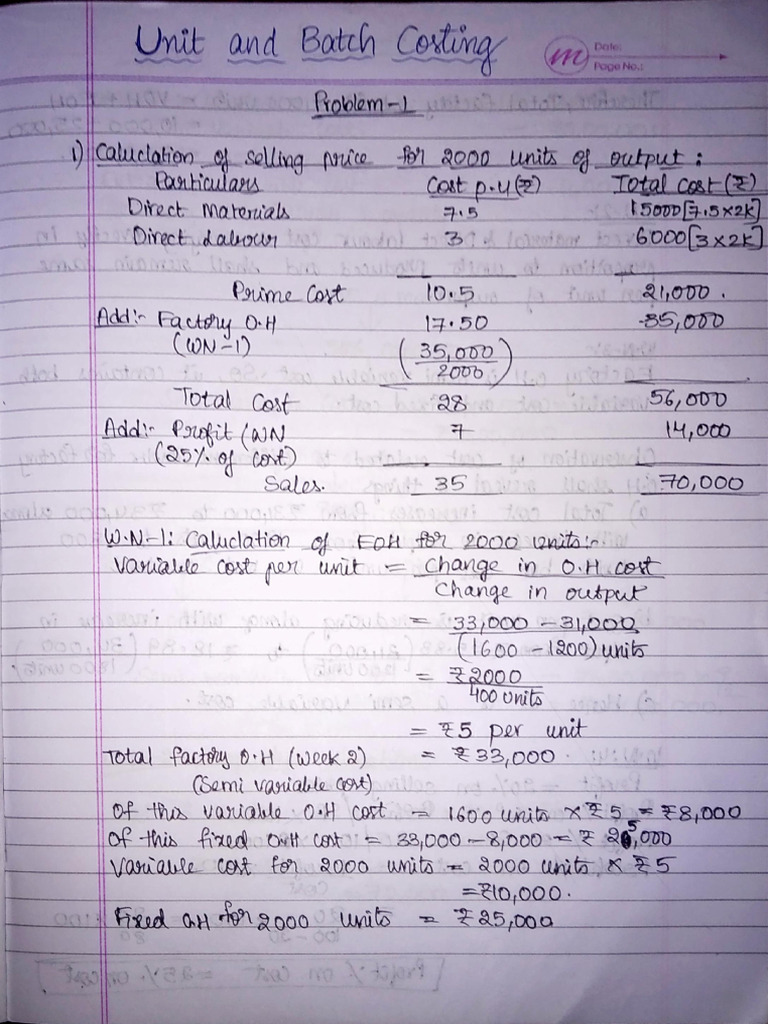 Unit and Batch Costing
m Date:
Page No.:
Problem-1
i) Caluclation of selling price for 2000 units of output :
Particulars Cost p.u(₹) Total cost (₹)
Direct Materials 7.5 15000[7.5x2K]
Direct Labour 3 6000[3x2K]
Prime Cost 10.5 21,000.
Add:- Factory O.H 17.50 35,000
(WN-1) (35,000/2000)
Total Cost 28 56,000
Add:- Profit (WN 7 14,000
(25% of cost)
Sales. 35 70,000
W.N-1: Caluclation of FOH for 2000 Units:-
Variable cost per unit = Change in O.H cost
Change in output
= 33,000 - 31,000
(1600 - 1200) units
= ₹2000
400 units
= ₹5 per unit
Total factory O.H (week 2) = ₹33,000.
(Semi variable cost)
Of this variable O.H cost = 1600 units x ₹5 = ₹8,000
Of this fixed O.H cost = 33,000-8,000 = ₹ 25,000
Variable cost for 2000 units = 2000 units x ₹5
= ₹10,000.
Fixed OH for 2000 units = ₹25,000